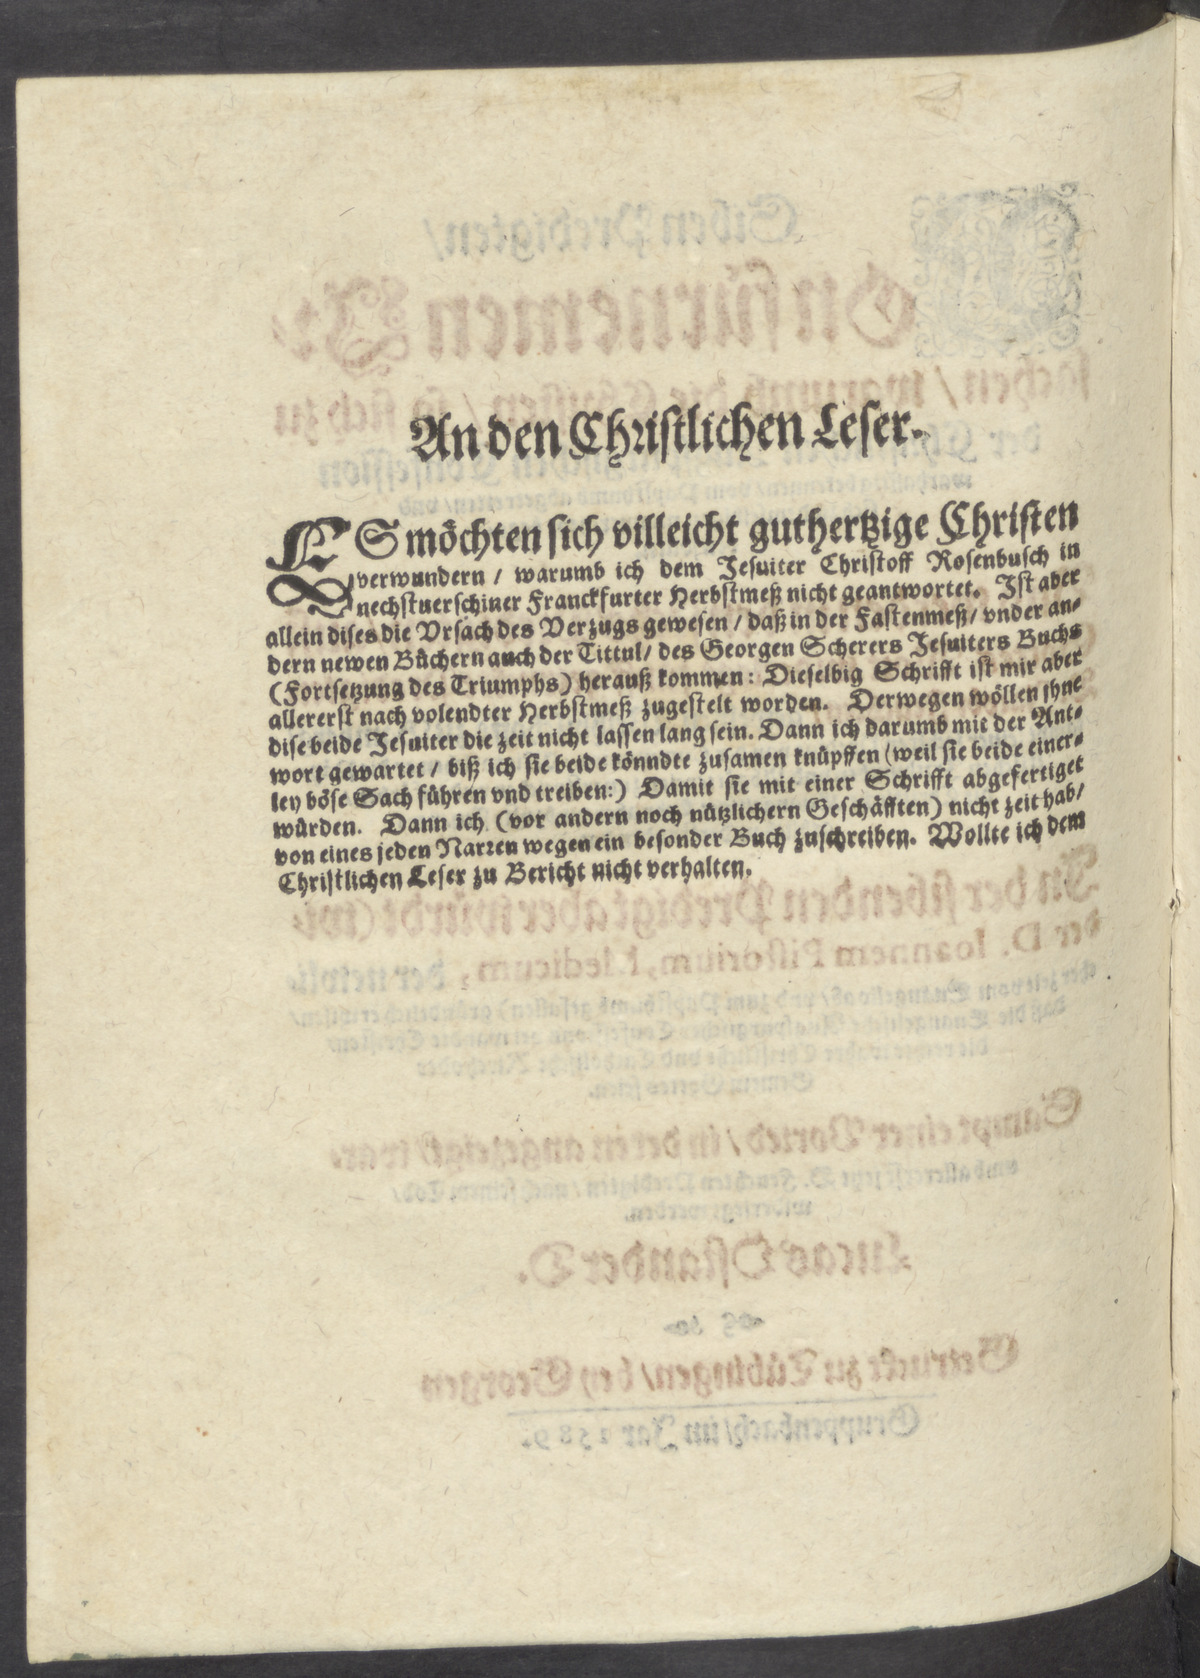 An den Christlichen Leser.
ES möchten sich villeicht guthertzige Christen
verwundern / warumb ich dem Jesuiter Christoff Rosenbusch in
nechstuerschiner Franckfurter Herbstmeß nicht geantwortet. Ist aber
allein dises die Vrsach des Verzugs gewesen / daß in der Fastenmeß / vnder an-
dern newen Büchern auch der Tittul / des Georgen Scherers Jesuiters Buchs
(Fortsetzung des Triumphs) herauß kommen: Dieselbig Schrifft ist mir aber
allererst nach volendter Herbstmeß zugestelt worden. Derwegen wöllen jhne
dise beide Jesuiter die zeit nicht lassen lang sein. Dann ich darumb mit der Ant-
wort gewartet / biß ich sie beide könndte zusamen knüpffen (weil sie beide einer-
ley böse Sach führen vnd treiben:) Damit sie mit einer Schrifft abgefertiget
würden. Dann ich (vor andern noch nützlichern Geschäfften) nicht zeit hab /
von eines jeden Narren wegen ein besonder Buch zuschreiben. Wollte ich dem
Christlichen Leser zu Bericht nicht verhalten.